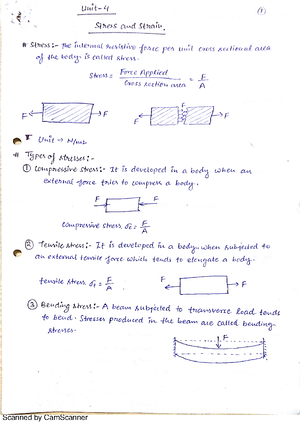 Unit-4
(1)
Stress and Strain
# Stress:- The internal resistive force per unit cross sectional area
of the body is called stress.
Stress = Force Applied / Cross section area = F/A
F F F F F
Unit → N/m2
# Types of stresses:-
① Compressive stress:- It is developed in a body when an
external force tries to compress a body.
F F
Compressive stress, σc = F/A
② Tensile stress:- It is developed in a body when subjected to
an external tensile force which tends to elongate a body.
tensile stress, σt = F/A
F F
③ Bending stress:- A beam subjected to transverse load tends
to bend. Stresses produced in the beam are called bending
stresses.
F
Scanned by CamScanner